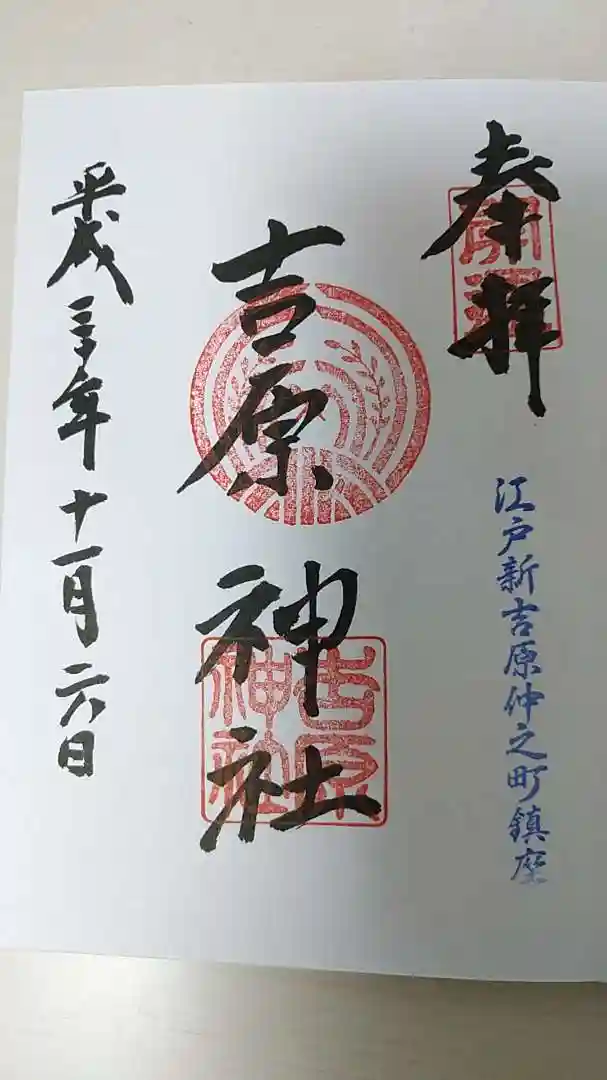 奉拝
開運
江戸新吉原仲之町鎮座
吉原神社
吉原神社
平成三十年十一月二六日